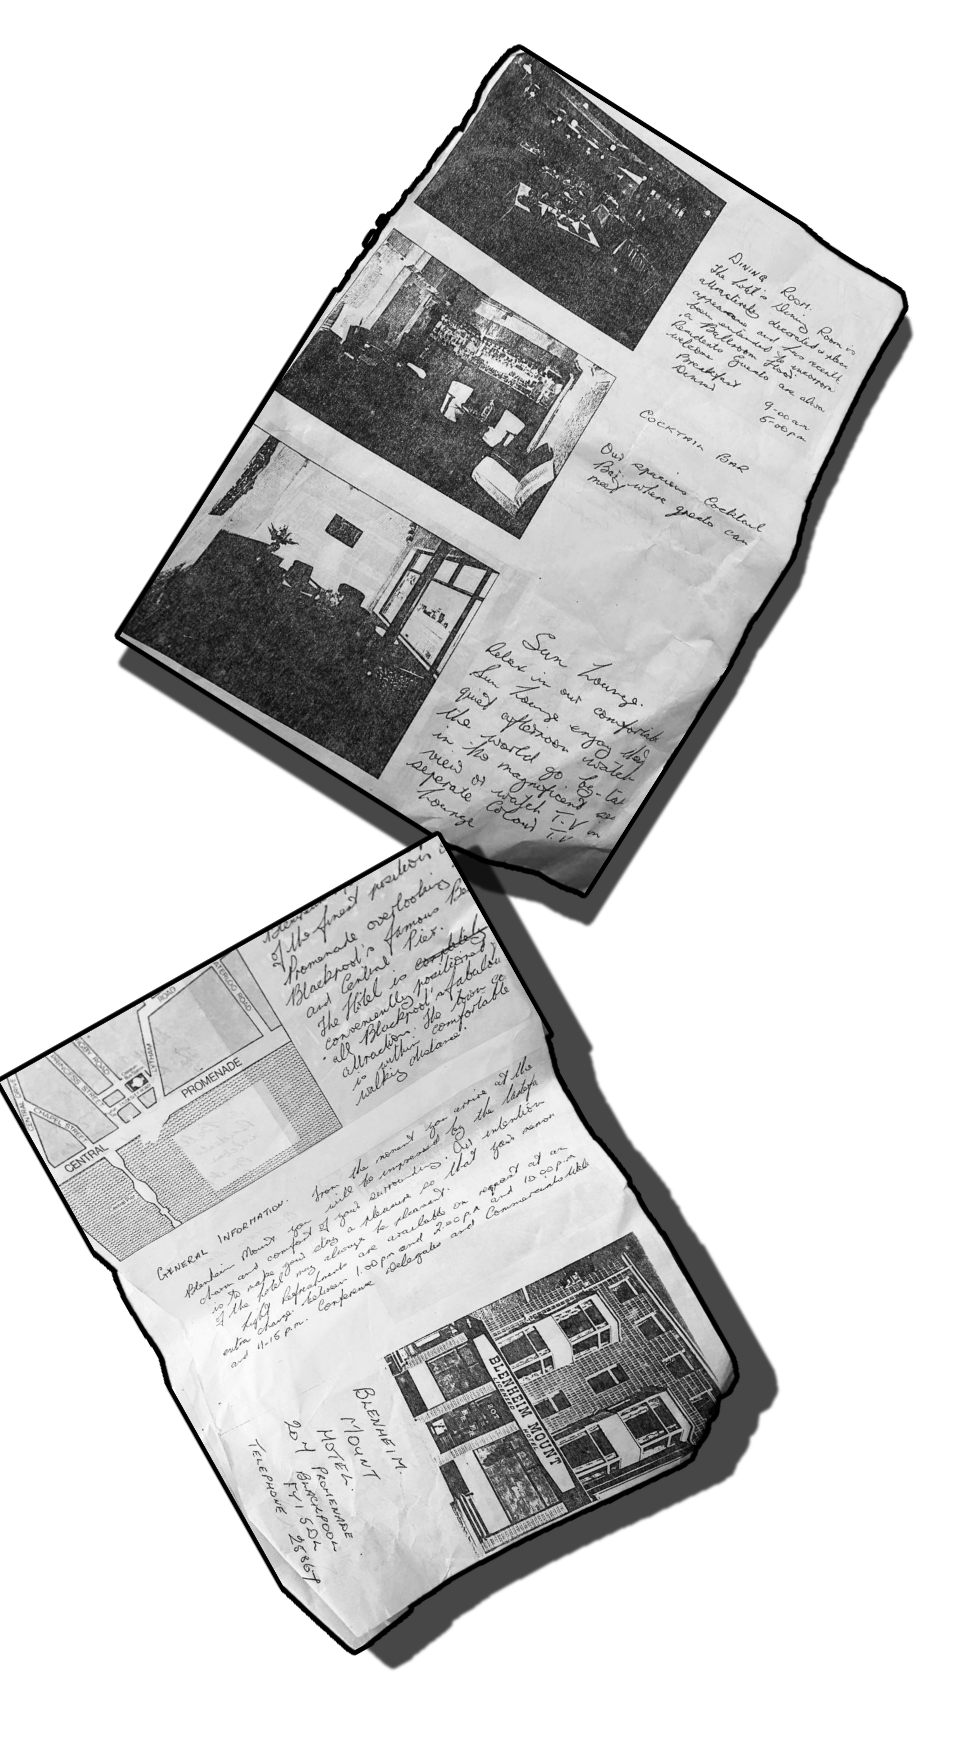 DINING ROOM.
The hotel's Dining Room is
attractively decorated
appearance and has recently
been extended to incorporate
a Ballroom floor
Residents Guests are always
welcome
Breakfast 9.00am
Dinner 5.00pm
COCKTAIL BAR
Our spacious Cocktail
Bar where guests can
meet
Sun Lounge.
Relax in our comfortable
Sun Lounge enjoy the
quiet afternoon watch
the world go by. Take
in the magnificent sea
view or watch T.V in
seperate Colour T.V
Lounge
of the finest positions
Promenade overlooking
Blackpool's famous
and Central Pier.
The Hotel is completely
conveniently positioned
all Blackpool's fabulous
attraction. The town
is within comfortable
walking distance.
ROAD
WATERLOO ROAD
CHAPEL STREET
PROMENADE
CENTRAL
GENERAL INFORMATION. From the moment you arrive at the
Blenheim Mount you will be impressed by the
charm and comfort of your surroundings. Our intention
is to make your stay a pleasure so that your
of the hotel may always be pleasant.
Light Refreshments are available on request at an
extra charge between 1.00pm and 2.00pm and 10.00p.m
and 11-15 p.m. Conference Delegates and Commercials
BLENHEIM MOUNT
BLENHEIM.
MOUNT
HOTEL.
207 PROMENADE
BLACKPOOL
FY1 5DL
TELEPHONE